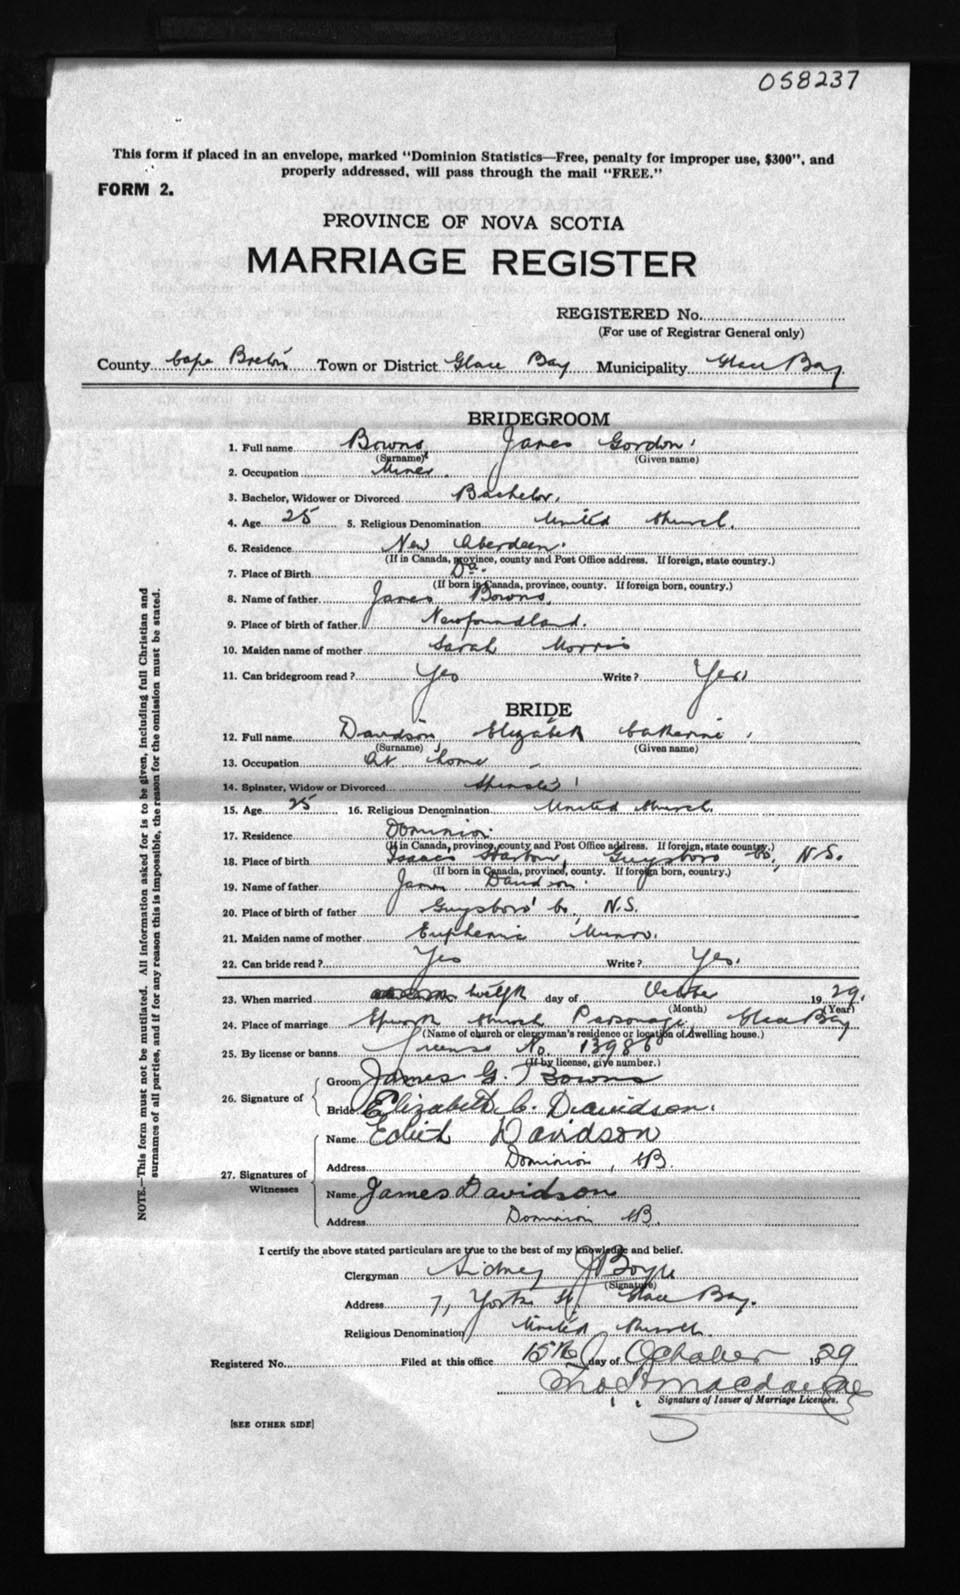 058237
This form if placed in an envelope, marked "Dominion Statistics—Free, penalty for improper use, $300", and
properly addressed, will pass through the mail "FREE."
FORM 2.
PROVINCE OF NOVA SCOTIA
MARRIAGE REGISTER
REGISTERED No.
(For use of Registrar General only)
County Cape Breton Town or District Glace Bay Municipality Glace Bay
BRIDEGROOM
1. Full name Bowns James Gordon
(Surname) (Given name)
2. Occupation Miner.
3. Bachelor, Widower or Divorced Bachelor.
4. Age 25 5. Religious Denomination United Church.
6. Residence New Aberdeen.
(If in Canada, province, county and Post Office address. If foreign, state country.)
7. Place of Birth Do.
(If born in Canada, province, county. If foreign born, country.)
8. Name of father James Bowns
9. Place of birth of father Newfoundland.
10. Maiden name of mother Sarah Morris
11. Can bridegroom read? Yes Write? Yes
BRIDE
12. Full name Davidson Elizabeth Catherine
(Surname) (Given name)
13. Occupation At home
14. Spinster, Widow or Divorced Spinster
15. Age 25 16. Religious Denomination United Church
17. Residence Dominion
(If in Canada, province, county and Post Office address. If foreign, state country.)
18. Place of birth Isaacs Harbour, Guysboro Co., N.S.
(If born in Canada, province, county. If foreign born, country.)
19. Name of father James Davidson
20. Place of birth of father Guysboro Co. N.S.
21. Maiden name of mother Euphemia Munro.
22. Can bride read? Yes Write? Yes.
23. When married twelfth day of October 1929.
(Month) (Year)
24. Place of marriage Church Parsonage, Glace Bay
(Name of church or clergyman's residence or location of dwelling house.)
25. By license or banns License No. 13986
(If by license, give number.)
26. Signature of
Groom James G. Bowns
Bride Elizabeth C. Davidson.
27. Signatures of
Witnesses
Name Edith Davidson
Address Dominion, CB.
Name James Davidson
Address Dominion CB.
I certify the above stated particulars are true to the best of my knowledge and belief.
Clergyman Sidney J Boyce
(Signature)
Address 7, York St, Glace Bay.
Religious Denomination United Church.
Registered No. Filed at this office 15th day of October 1929
Signature of Issuer of Marriage Licenses.
[SEE OTHER SIDE]
NOTE.—This form must not be mutilated. All information asked for is to be given, including full Christian and
surnames of all parties, and if for any reason this is impossible, the reason for the omission must be stated.